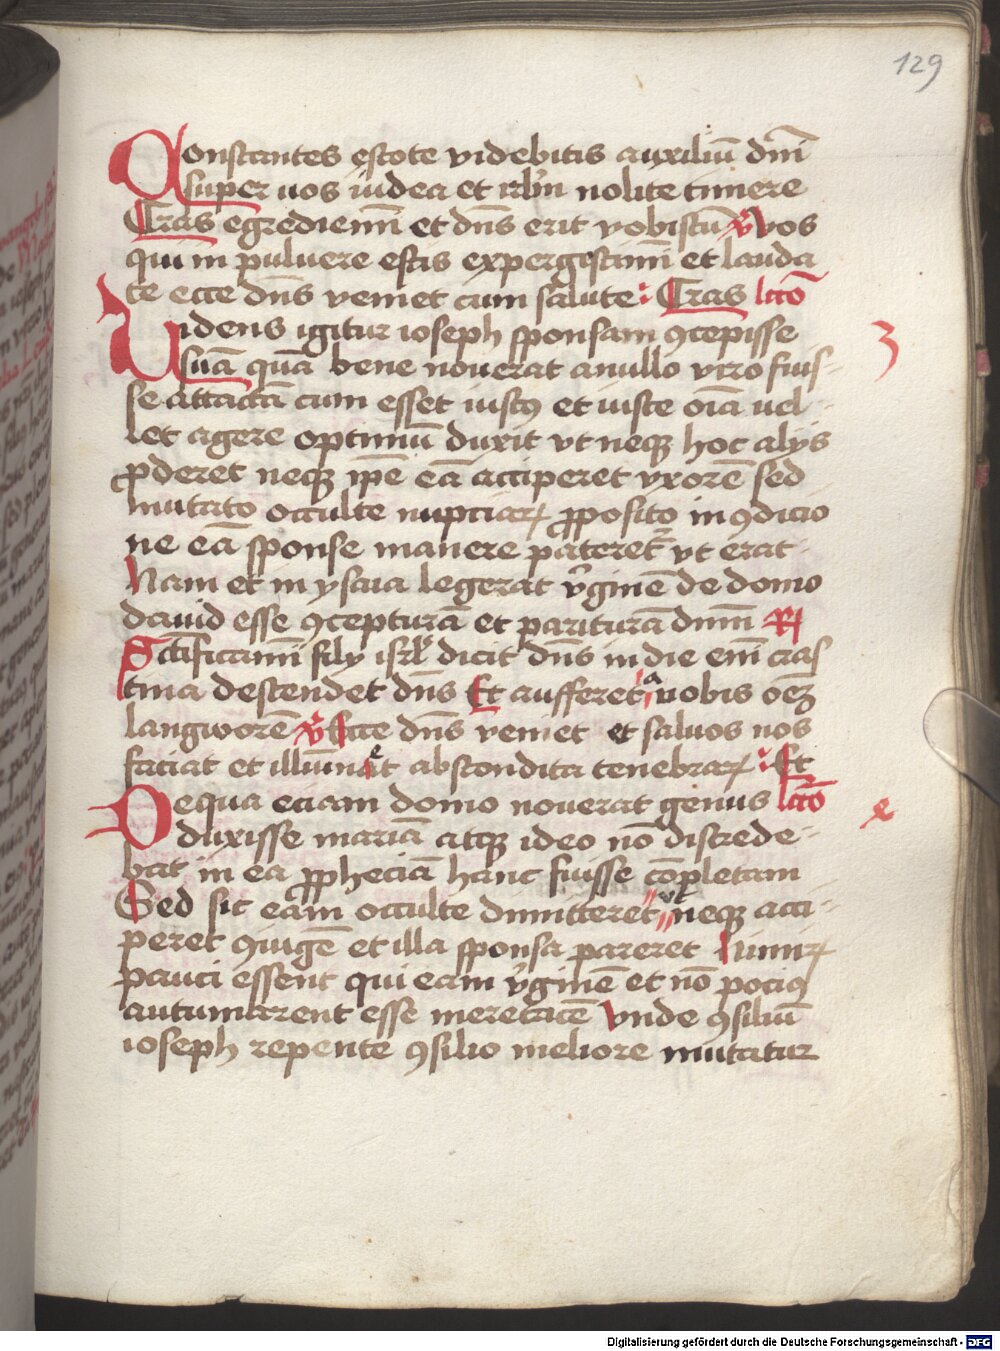 129
Constantes estote videbitis auxiliū dnī
super uos iudea et irlm̄ nolite timere
Cras egrediemī et dn̄s erit vobiscū ℣ Vos
qui in puluere estis expergiscimī et lauda
te ecce dn̄s veniet cum salute : Cras lcc̄o
Uidens igitur ioseph sponsam ꝯcepisse
3
suā quā bene nouerat a nullo viro fuis-
se attactā cum esset iustꝯ et iuste oīa uel-
let agere optimū duxit vt neqꝫ hoc alijs
ꝓderet neqꝫ ip̄e eā acciperet vxorē sed
mutato occulte nupciaꝝ ꝓposito in ꝯdicio
ne eā sponse manere pateret̄ vt erat
Nam et in ysaia legerat v̄ginē de domo
dauid esse ꝯcepturā et parituram dnm̄ ℟
Sctīficamī filij isrl̄ dicit dn̄s in die enī cras
tina descendet dn̄s Et aufferet a uobis oēꝫ
langworē ℣ Ecce dn̄s veniet et saluos nos
faciat et illūinaet abscondita tenebraꝝ : Et
De qua eciam domo nouerat genus lcc̄o
duxisse mariā atqꝫ ideo nō discrede-
bat in ea ꝓpheciā hanc fuisse cōpletam
Sed sic eam occulte dimitteret ut neqꝫ acci-
peret ꝯiugē et illa sponsa pareret nimiꝝ
pauci essent qui eam v̄ginē et nō pociꝯ
autumarent esse meretricē vnde ꝯsiliū
ioseph repente ꝯsilio meliore mutatur
Digitalisierung gefördert durch die Deutsche Forschungsgemeinschaft - DFG